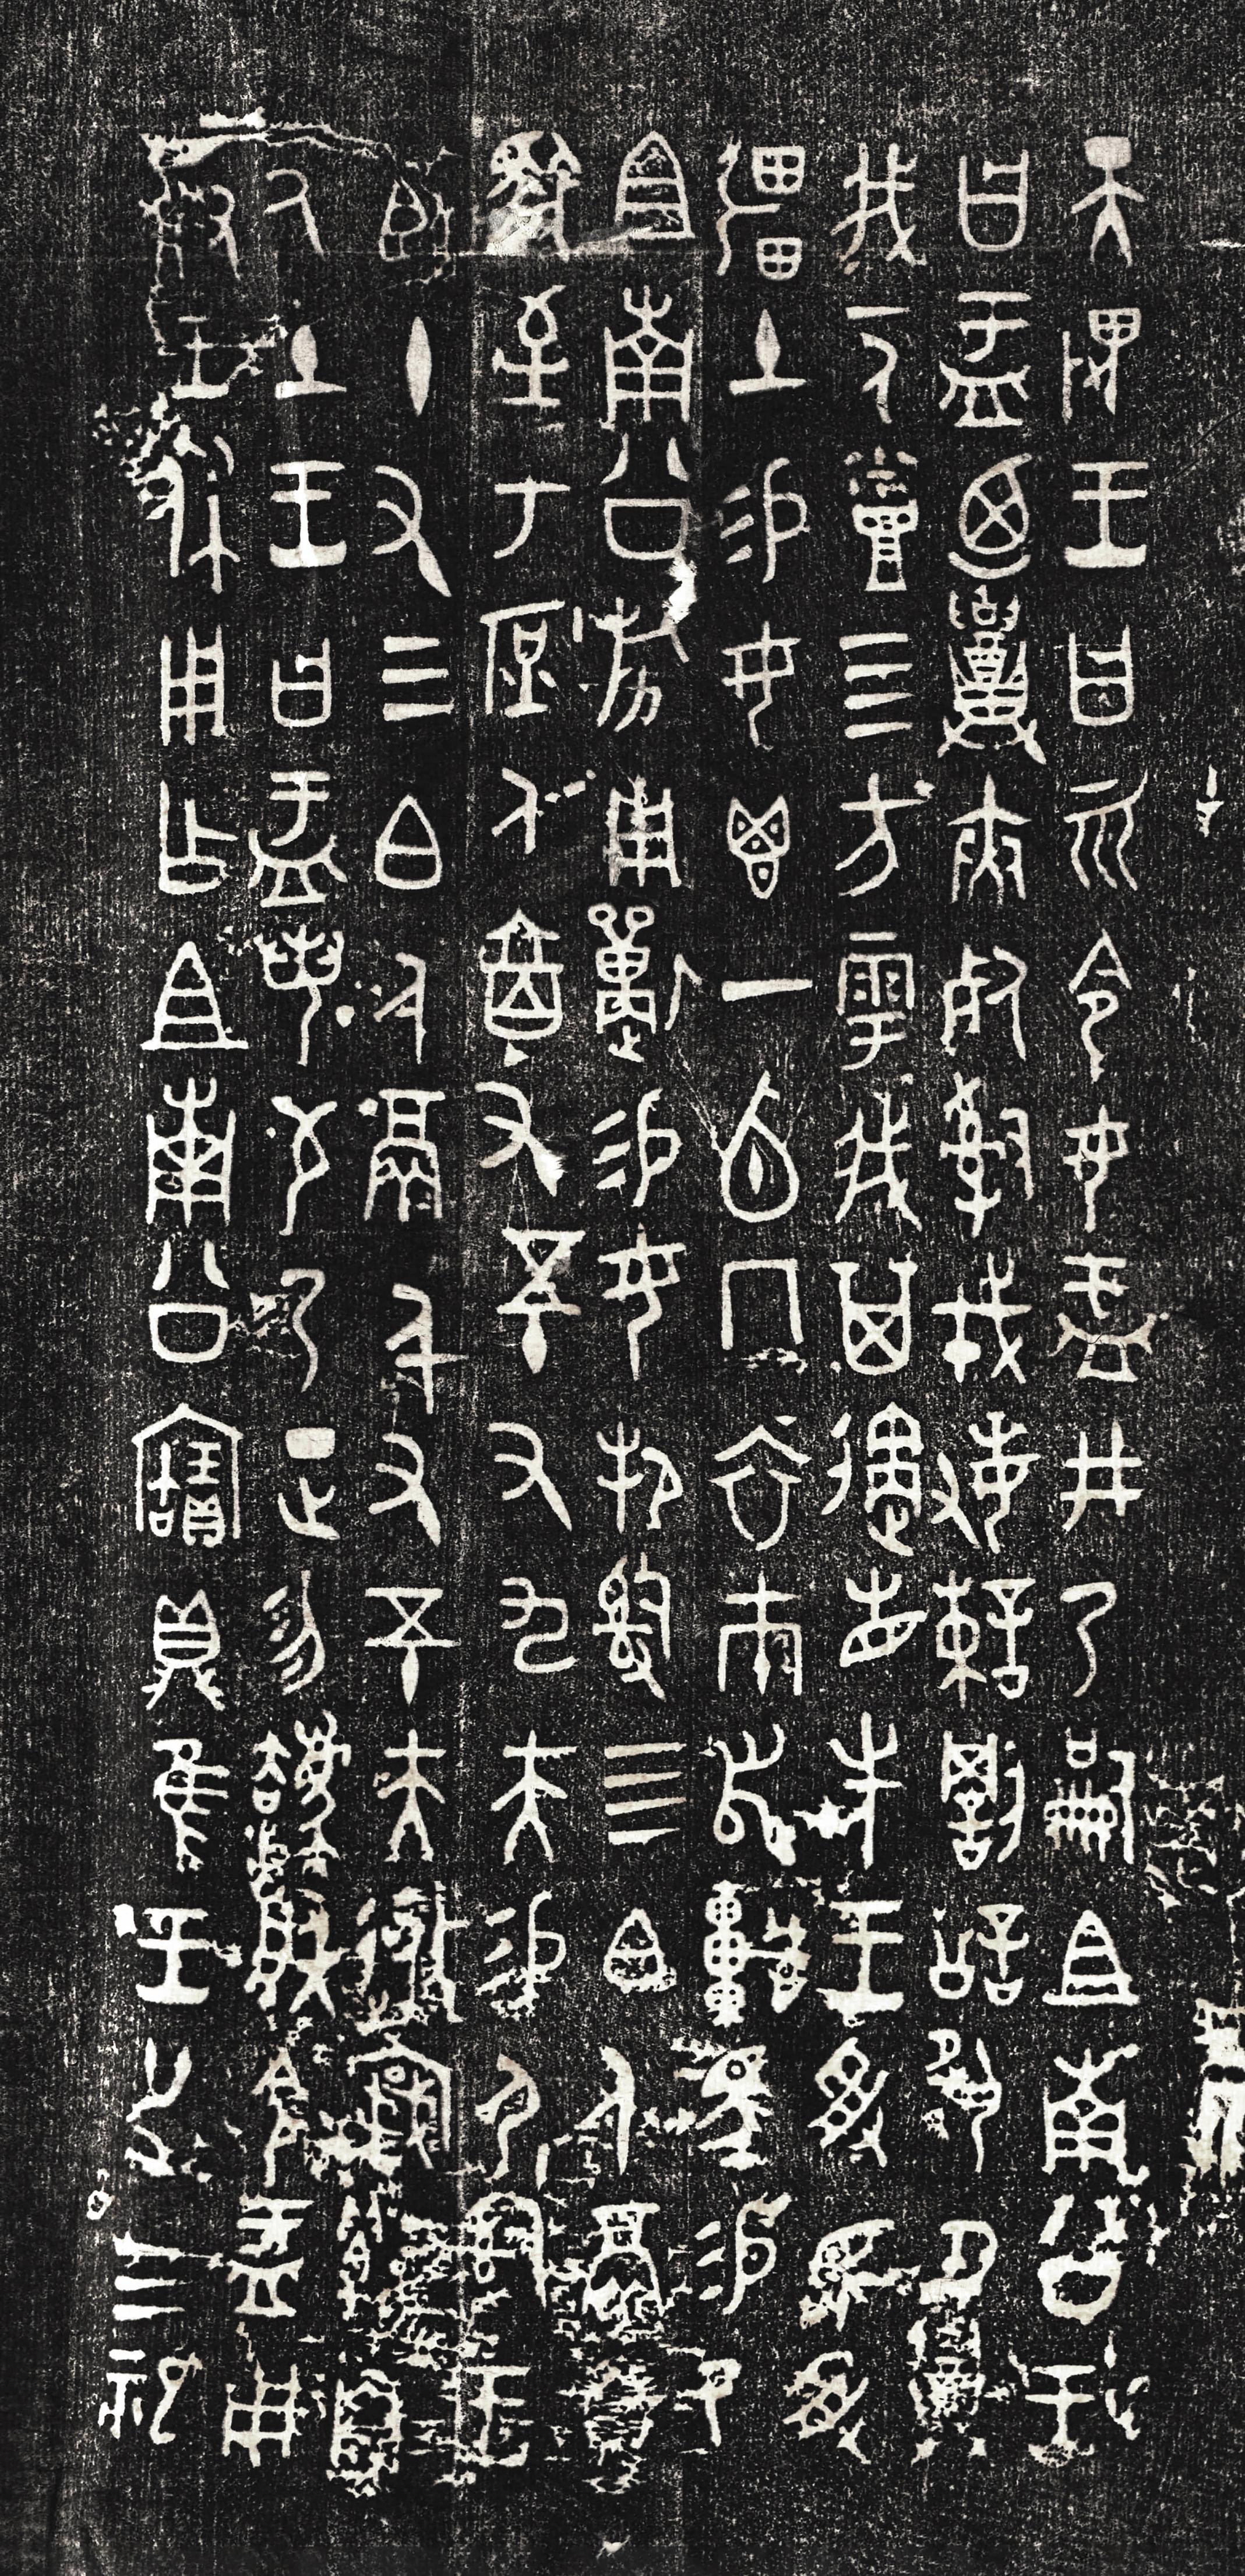 天畏王曰而令女盂井乃嗣且南公王
曰盂迺召夾死𤔲戎敏諫罰訟夙夕召
我一人烝四方雩我其遹省先王受民受
彊土易女鬯一卣冂衣巿舄車馬易乃
且南公旂用遷易女邦𤔲四白人鬲自
馭至于庶人六百又五十又九夫易尸𤔲王
臣十又三白人鬲千又五十夫自
厥土王曰盂若敬乃正勿灋朕令盂用
對王休用乍且南公寶鼎隹王廿又三祀